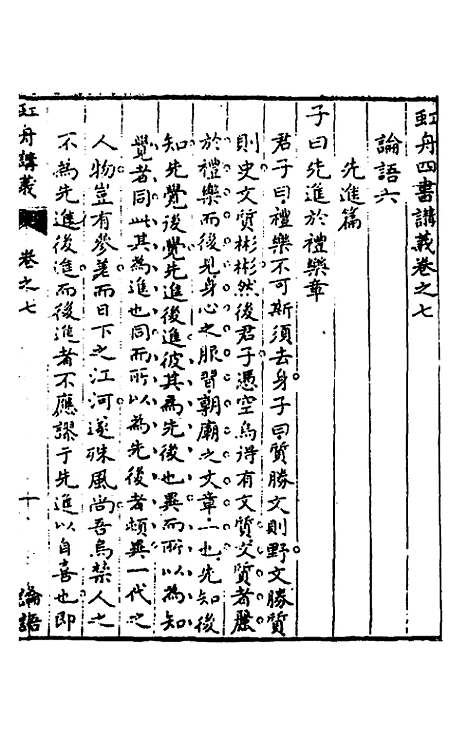 虹舟四書講義卷之七
論語六
先進篇
子曰先進於禮樂章
君子曰禮樂不可斯須去身子曰質勝文則野文勝質
則史文質彬彬然後君子憑空烏得有文質文質者麗
於禮樂而後見身心之服習朝廟之文章一也先知後
知先覺後覺先進後進彼其為先後也異而所以為知
覺者同此其為進也同而所以為先後者頓異一代之
人物豈有參差而日下之江河遂殊風尚吾烏禁人之
不為先進後進而後進者不應謬于先進以自喜也即
虹舟講義
卷之七
論語